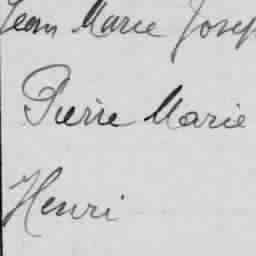 Jean Marie Josep
Pierre Marie
Henri